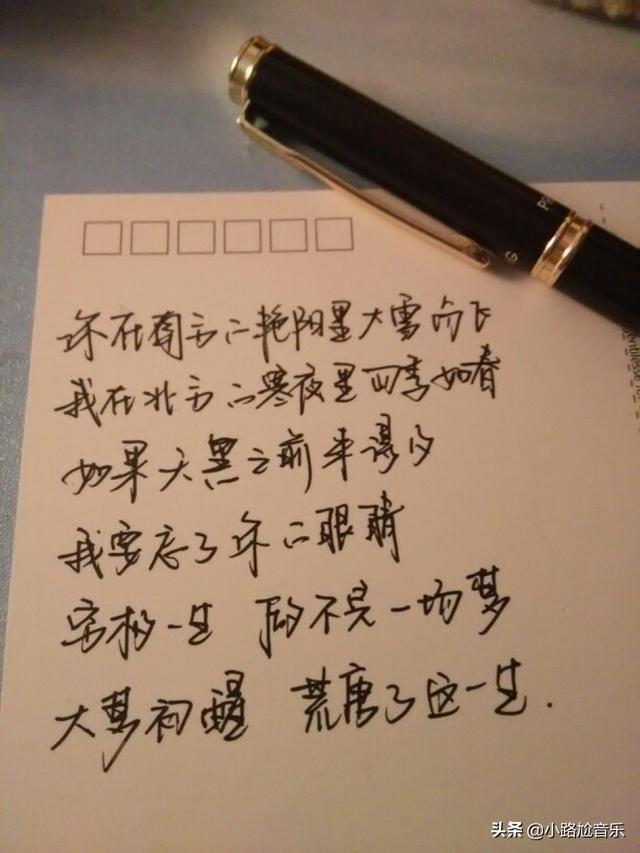 你在南方的艳阳里大雪纷飞
我在北方的寒夜里四季如春
如果天黑之前来得及
我要忘了你的眼睛
穷极一生 做不完一场梦
大梦初醒 荒唐了这一生.
头条 @小路尬音乐